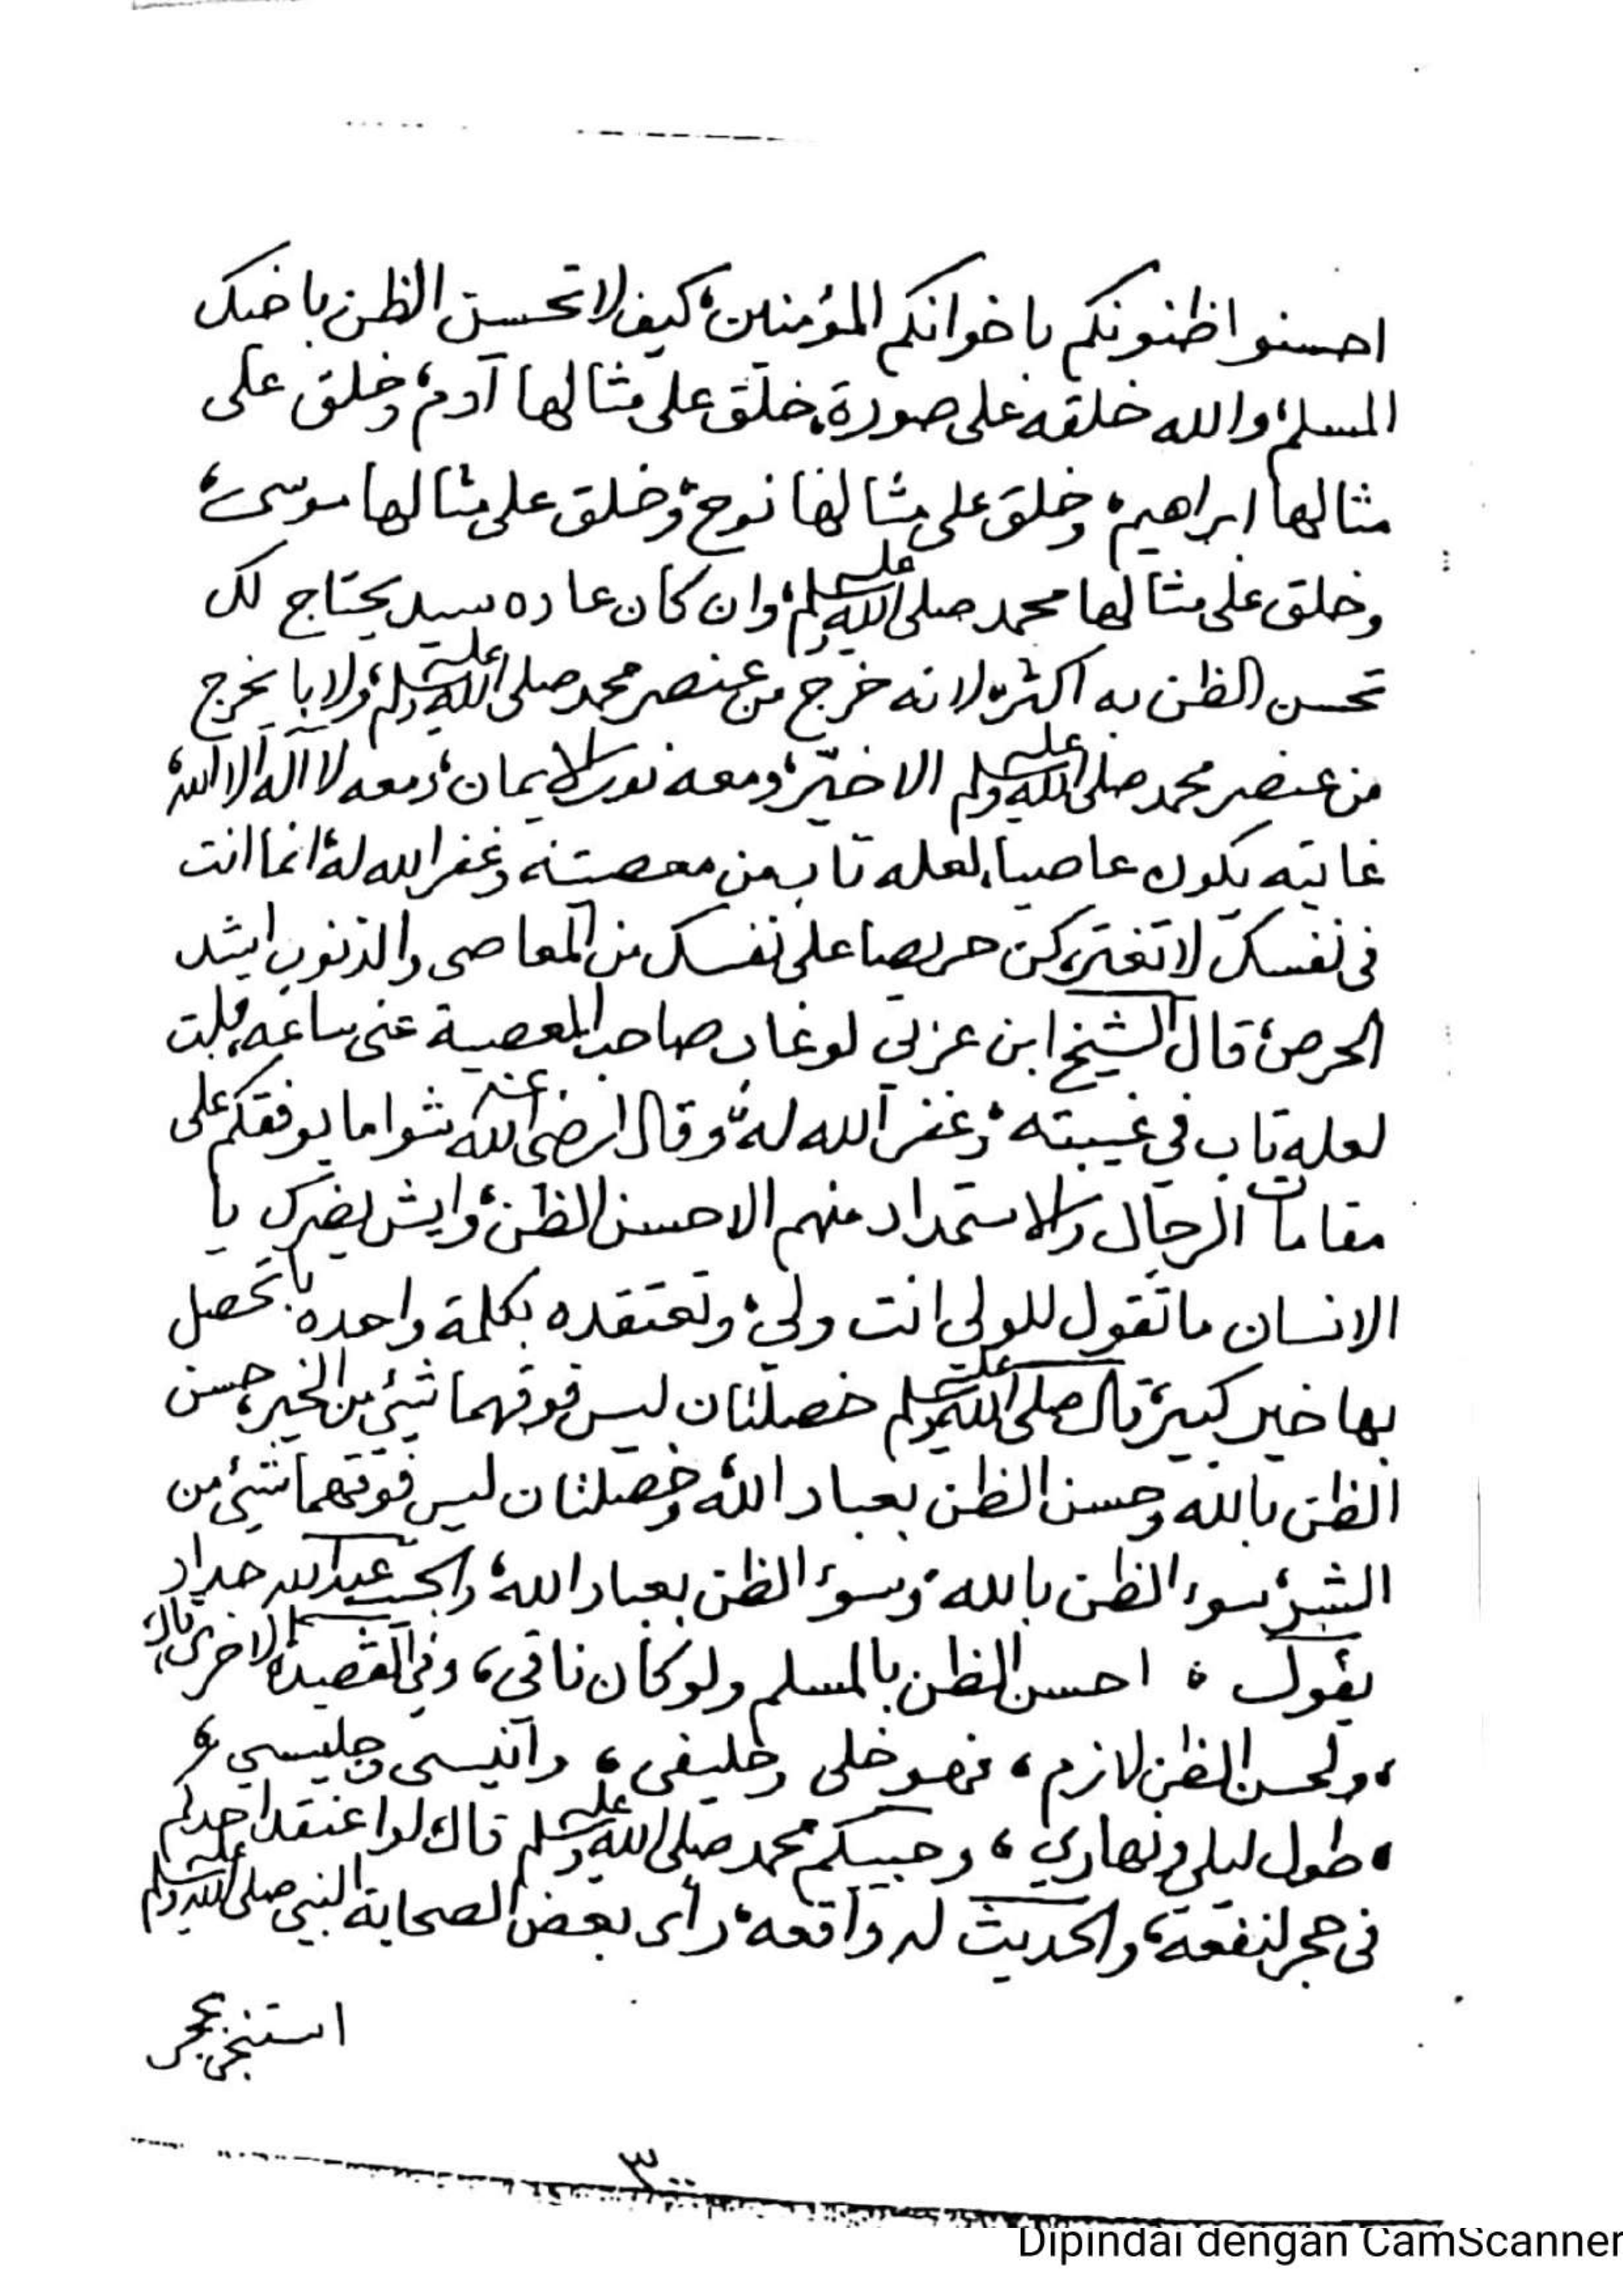 احسنوا ظنونكم باخوانكم المؤمنين، كيف لا تحسن الظن باخيك
المسلم، والله خلقه على صورة، خلق على مثالها آدم، وخلق على
مثالها ابراهيم، وخلق على مثالها نوح، وخلق على مثالها موسى،
وخلق على مثالها محمد صلى الله عليه وسلم، وان كان عاده سيد يحتاج لك
تحسن الظن به اكثر، لانه خرج من عنصر محمد صلى الله عليه وسلم، ولا با يخرج
من عنصر محمد صلى الله عليه وسلم الا خيّر، ومعه نور الايمان، ومعه لا اله الا الله،
غايته يكون عاصيا، لعله تاب من معصيته وغفر الله له، انما انت
في نفسك لا تغتر، كن حريصا على نفسك من المعاصى والذنوب اشد
الحرص، قال الشيخ ابن عربي لو غاب صاحب المعصية عنى ساعه، قلت
لعله تاب في غيبته، وغفر الله له، وقال رضى الله عنه شوا ما يوقفكم على
مقامات الرجال والاستمداد منهم الا حسن الظن، وايش يضرك يا
الانسان ما تقول للولى انت ولي، وتعتقده بكلمة واحده با تحصل
بها خير كبير، قال صلى الله عليه وسلم خصلتان ليس فوقهما شيئ من الخير، حسن
الظن بالله وحسن الظن بعباد الله، وخصلتان ليس فوقهما شيئ من
الشر، سوء الظن بالله، وسوء الظن بعباد الله، والحبيب عبد الله حداد
يقول ، احسن الظن بالمسلم ولو كان ناقى، وفي القصيدة الاخرى قال،
، ولحسن الظن لازم ، فهو خلى وحليفى ، وانيسى وجليسي ،
، طول ليلى ونهاري ، وحبيبكم محمد صلى الله عليه وسلم قال لو اعتقد احدكم
في حجر لنفعه، والحديث له واقعه، رأى بعض الصحابة النبي صلى الله عليه وسلم
استنجى بحجر
٣
Dipindai dengan CamScanner